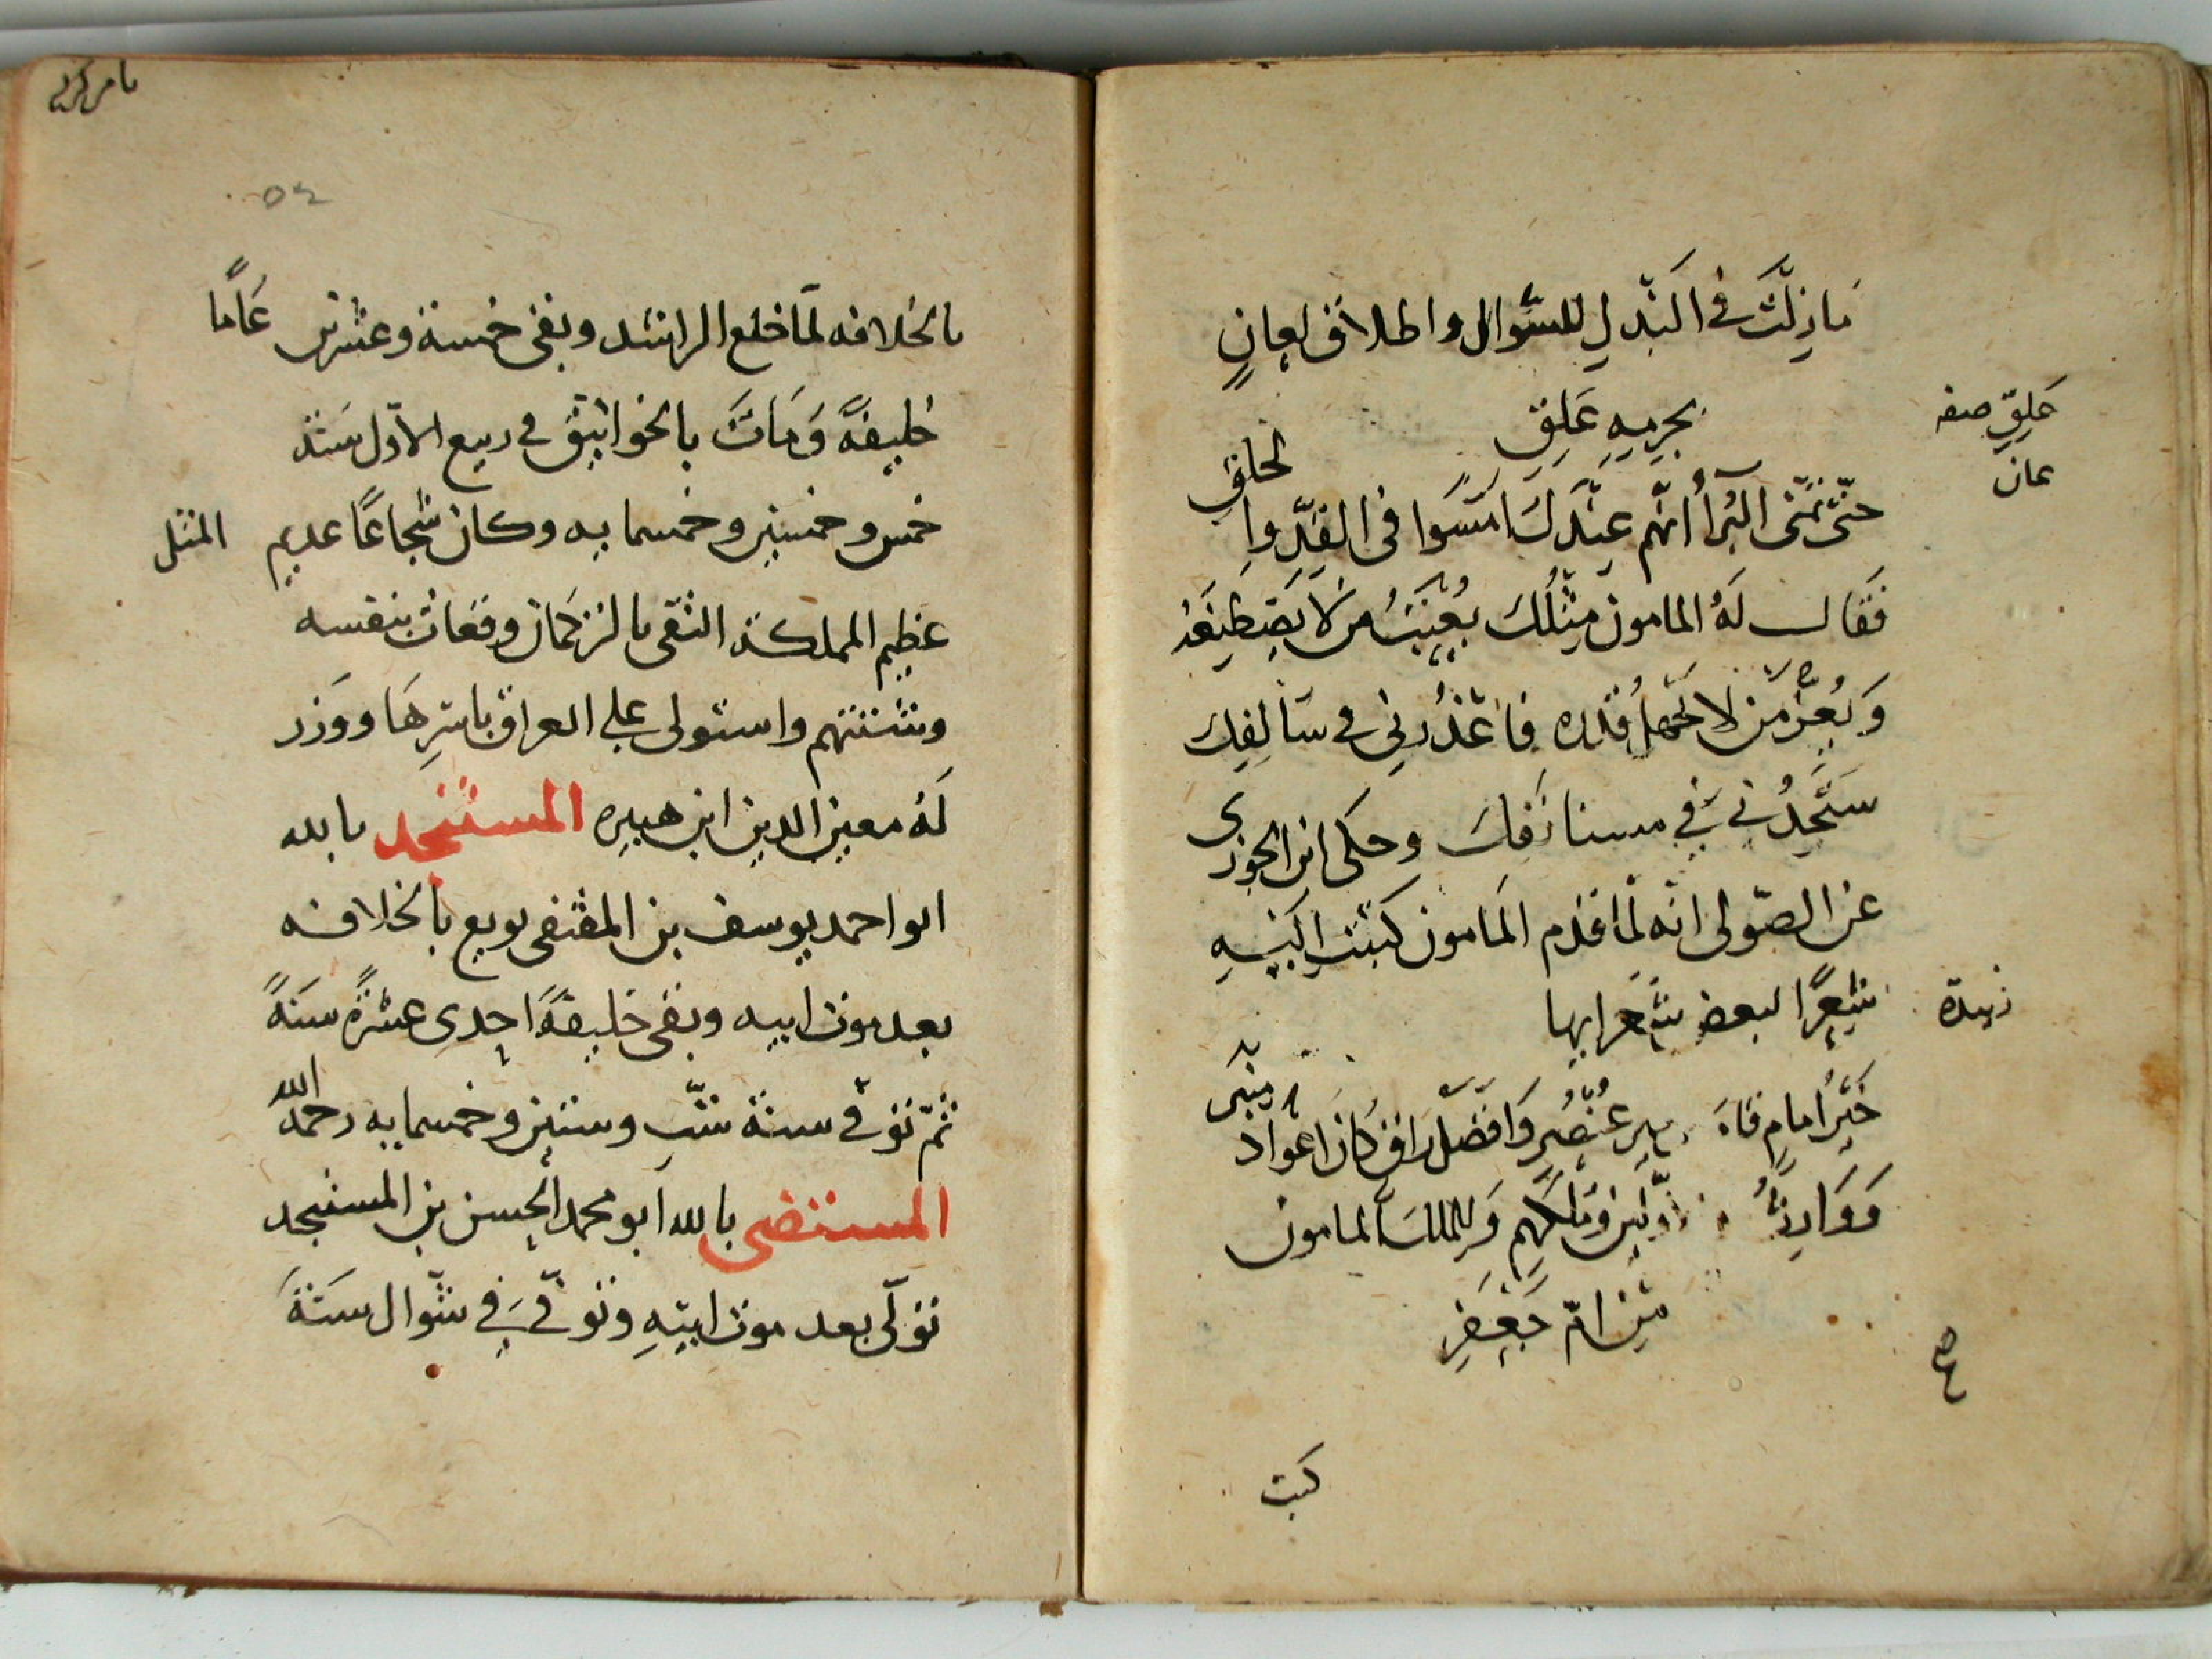 ما زِلْتَ في البَذلِ للسّوال واطلاق لعانٍ
بجرمِهِ عَلِقِ
غلِقِ صفه
عان
حتّى تمنّى البُرآُ انّهم عندَكَ امسَوا في القِدِّ والحلَقِ
فَقال لَهُ المامون مِثْلُكَ يُعيبُ من لا يَصطَنِعُهُ
وَيُعِرّ مَن لا يجهلُ قدره فاعْذُرنى فى سَالِفِكَ
ستَجدُني في مستانَفِكَ وحكى ابن الجوزى
عن الصّولى انّه لمّا قدم المَامون كتبَت اليه
شِعرًا لبعض شعَرايها
زبيدة
خَيرُ امامٍ قامَ من خيرِ عُنصُرٍ وَافضَل راقٍ كانَ اعواد منبَر
وَوَارِثُ الاوّلينَ ومُلكَهِم وَللملكَ المامون
مِن امّ جَعفَرِ
كتبت
٥٤
بالخلافه لمّا خلع الراشد وبقى خمسة وعشرين عَامًا
خليفةً وَمَاتَ بالخوانيق في ربيع الاوّل سَنة
خمس وخمسين وخمسمايه وكان شجاعًا عديم المثل
عظيم المملكة التقى بالتركمان وقعات بنفسه
وشتتهم واستولى على العراق باسرِهَا ووَزر
لَهُ معين الدين ابن هبيره المستنجد بالله
ابو احمد يوسف بن المقتفى بويع بالخلافه
بعد موت ابيه وبقى خليفةً احِدى عشرَةً سنَةً
ثمّ توفى سنة ستّ وستين وخمسمايه رحمه الله
المستضى بالله ابو محمد الحسن بن المستنجد
تولّى بعد موت ابيهِ وتوفّى في شوّال سنَةَ